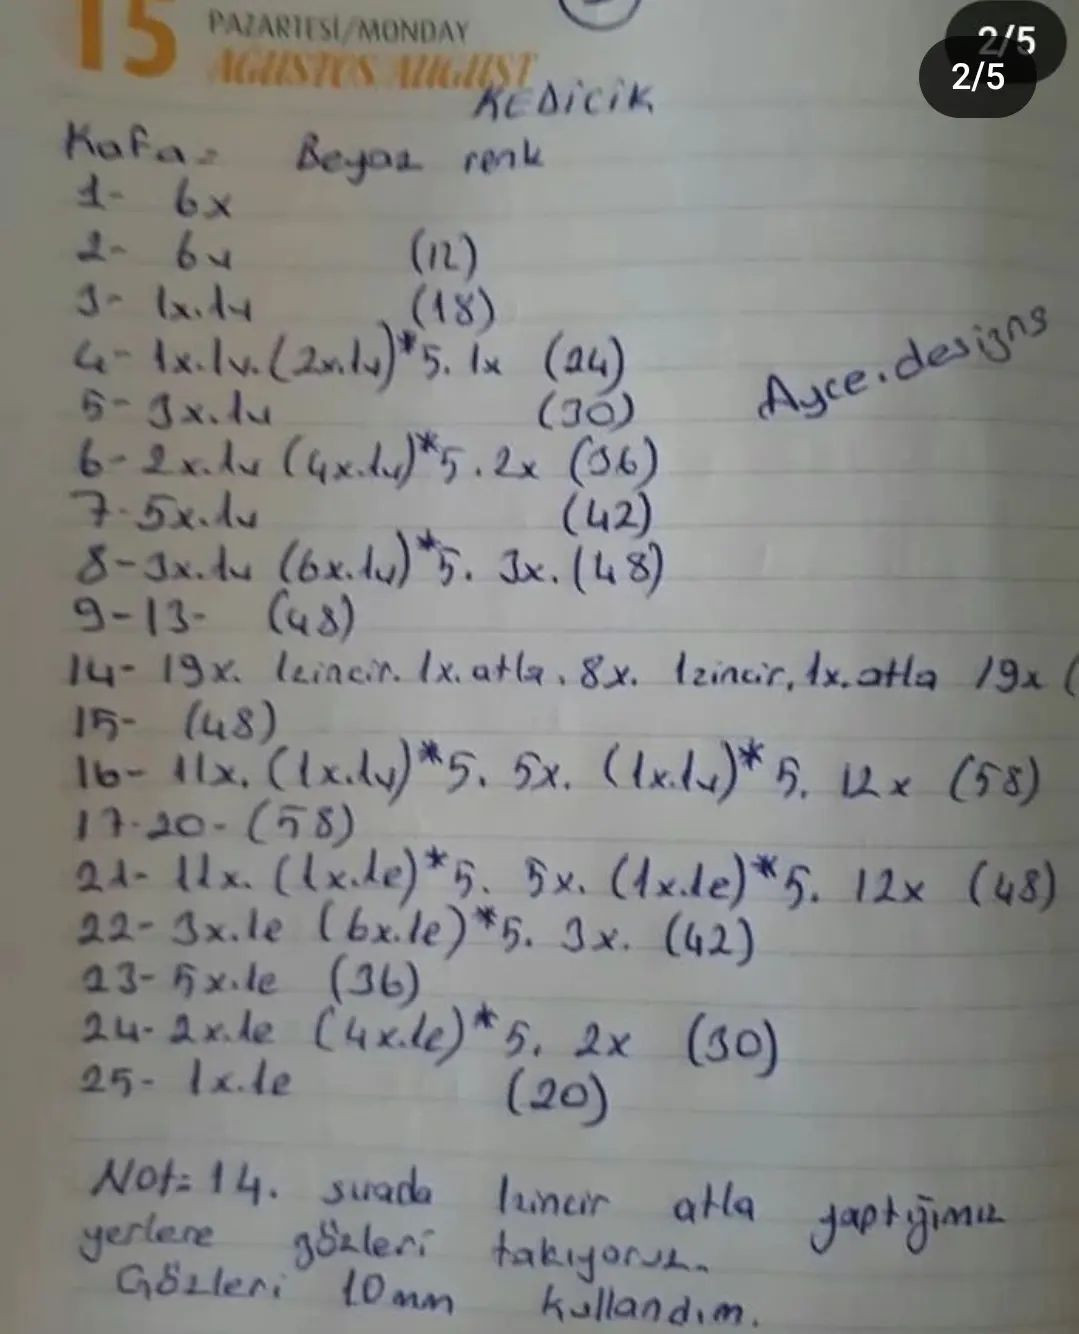 2/5
2/5
15 PAZARTESİ/MONDAY
AĞUSTOS AUGUST
KEDİCİK
Kafa= Beyaz renk
1- 6x
2- 6v (12)
3- 1x.1v (18)
4- 1x.1v.(2x.1v)*5. 1x (24)
5- 3x.1v (30)
Ayce.designs
6- 2x.1v (4x.1v)*5. 2x (36)
7- 5x.1v (42)
8- 3x.1v (6x.1v)*5. 3x. (48)
9-13- (48)
14- 19x. 1zincir. 1x.atla. 8x. 1zincir. 1x.atla 19x (
15- (48)
16- 11x. (1x.1v)*5. 5x. (1x.1v)*5. 12x (58)
17-20- (58)
21- 11x. (1x.1e)*5. 5x. (1x.1e)*5. 12x (48)
22- 3x.1e (6x.1e)*5. 3x. (42)
23- 5x.1e (36)
24- 2x.1e (4x.1e)*5. 2x (30)
25- 1x.1e (20)
Not= 14. sırada 1zincir atla yaptığımız
yerlere gözleri takıyoruz.
Gözleri 10mm kullandım.